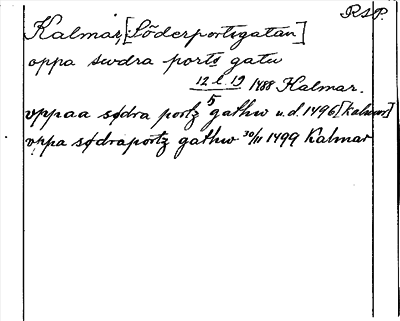 RSP.
Kalmar, [Söderportsgatan]
oppa swdra ports gatu
12 l. 19 1488 Kalmar.
5
vppaa sødra portz gathw u.d. 1496 [Kalmar]
vppa sødraportz gathw 30/11 1499 Kalmar